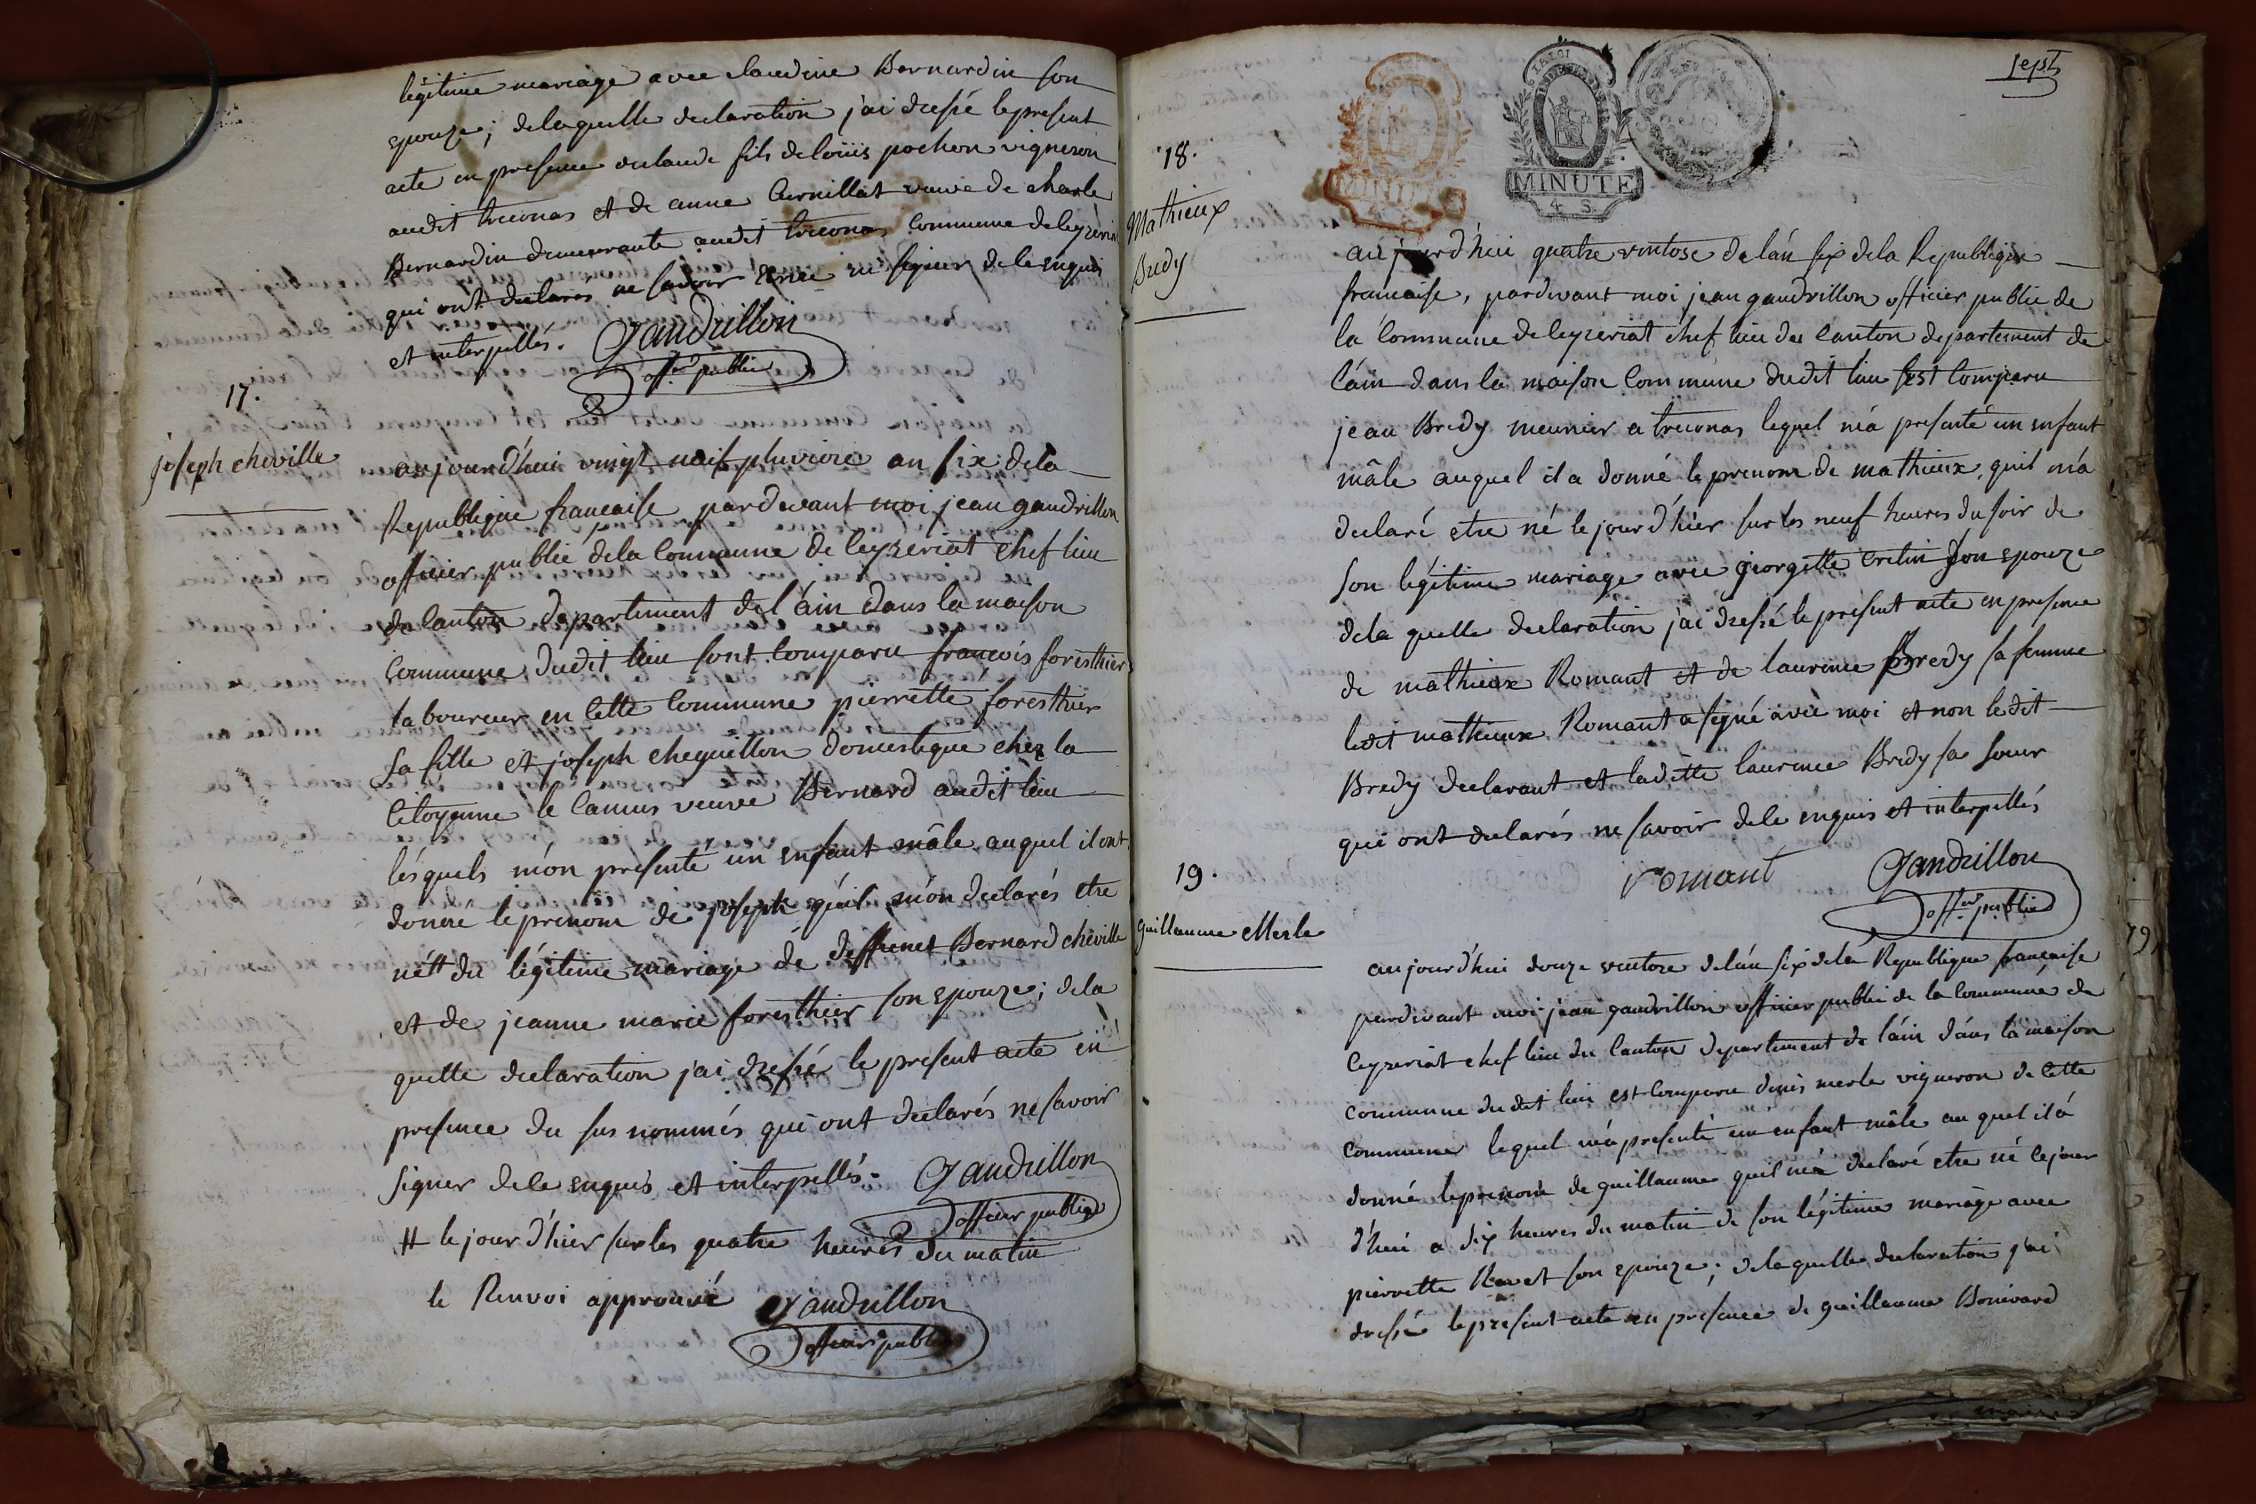 légitime mariage avec claudine Bernardin son
epouze; delaquelle declaration j'ai dressé le present
acte en presence de claude fils de loüis pochon vigneron
audit treconas et de anne Curnillat veuve de charle
Bernardin demeurante audit treconas commune de leyzeriat
qui ont declarés ne savoir ecrire ni signer de le enquis
et interpellés. Gaudrillon
offer public
17.
joseph cheville
aujourd'hui vingt neuf pluviose an six dela
Republique française pardevant moi jean gaudrillon
officier public dela Commune de leyzeriat chef lieu
de Canton departement de l'áin dans la maison
Commune dudit lieu sont comparu francois foresthier
laboureur en cette Commune pierrette foresthier
sa fille et joseph cheguillon domestique chez la
Citoyenne le Camus veuve Bernard audit lieu
lésquels m'ón presenté un enfant mâle auquel il ont
donne le prenom de joseph qu'il m'ón declarés etre
né # du légitime mariage de deffunct Bernard cheville
et de jeanne marie foresthier son epouze; dela
quelle declaration j'ai dressé le present acte en
presence du sus nommés qui ont declarés ne savoir
signer de le enquis et interpellés. Gaudrillon
officier public
# le jour d'hier sur les quatre heures du matin
le Renvoi approuvé Gaudrillon
officier public
sept
MINUTE
4 S.
18.
Mathieux
Bredy
aujourd'hui quatre ventose de l'an six dela Republique
francaise, pardevant moi jean gaudrillon officier public de
la Commune de leyzeriat chef lieu du Canton departement de
l'áin dans la maison Commune dudit lieu est Comparu
jean Bredy meunier a treconas lequel m'a presenté un enfant
mâle auquel il a donné le prenom de mathieux, quil m'a
declaré etre né le jour d'hier sur les neuf heures du soir de
son légitime mariage avec georgette cretin son epouze
dela quelle declaration j'ai dressé le present acte en presence
de mathieux Romant et de laurence Bredy sa femme
ledit mathieux Romant a signé avec moi et non le dit
Bredy declarant et laditte laurence Bredy sa soeur
qui ont declarés ne savoir de le enquis et interpellés
romant Gaudrillon
offer public
19.
guillaume Merle
aujourd'hui douze ventose de l'an six de la Republique française
pardevant moi jean gaudrillon officier public de la Commune de
leyzeriat chef lieu du Canton departement de l'áin dans la maison
commune du dit lieu est Comparu denis merle vigneron de cette
Commune lequel m'a presenté un enfant mâle au quel il á
donné le prenom de guillaume quil m'a declaré etre né ce jour
d'hui a dix heures du matin de son légitime mariage avec
pierrette Ravet son epouze; dela quelle declaration j'ai
dressé le present acte en presence de guillaume Bonivard